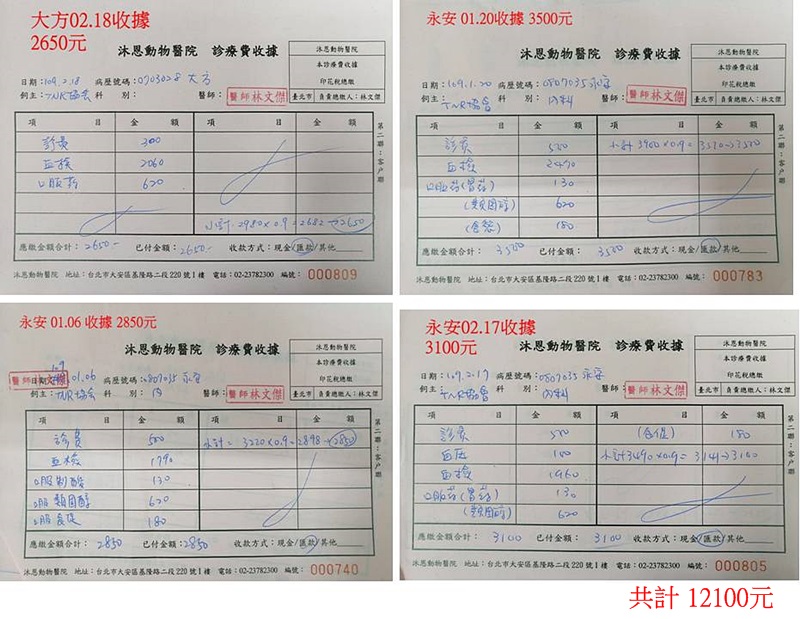 大方02.18收據
2650元
沐恩動物醫院 診療費收據
沐恩動物醫院
本診療費收據
印花稅總繳
臺北市 負責總繳人：林文傑
日期：109.2.18 病歷號碼：0703028 大方
飼主：TNR協會 科 別： 醫師：醫師林文傑
項 目 金 額 項 目 金 額
診費 300
血檢 2060
口服藥 620
小計：2980×0.9=2682→2650
應繳金額合計：2650- 已付金額：2650- 收款方式：現金/匯款/其他
第二聯：客戶聯
沐恩動物醫院 地址：台北市大安區基隆路二段220號1樓 電話：02-23782300 編號：000809
永安 01.20收據 3500元
沐恩動物醫院 診療費收據
沐恩動物醫院
本診療費收據
印花稅總繳
臺北市 負責總繳人：林文傑
日期：109.1.20 病歷號碼：0807035 永安
飼主：TNR協會 科 別：內科 醫師：醫師林文傑
項 目 金 額 項 目 金 額
診費 500 小計 3900×0.9=3510→3500
血檢 2470
口服藥(胃藥) 130
(類固醇) 620
180
應繳金額合計：3500 已付金額：3500 收款方式：現金/匯款/其他
第二聯：客戶聯
沐恩動物醫院 地址：台北市大安區基隆路二段220號1樓 電話：02-23782300 編號：000783
永安 01.06 收據 2850元
沐恩動物醫院 診療費收據
沐恩動物醫院
本診療費收據
印花稅總繳
臺北市 負責總繳人：林文傑
日期：109.01.06 病歷號碼：0807035 永安
飼主：TNR協會 科 別：內 醫師：醫師林文傑
項 目 金 額 項 目 金 額
診費 500 小計= 3220×0.9=2898→2850
血檢 1790
口服制酸 130
口服類固醇 620
口服 180
應繳金額合計：2850 已付金額：2850 收款方式：現金/匯款/其他
第二聯：客戶聯
沐恩動物醫院 地址：台北市大安區基隆路二段220號1樓 電話：02-23782300 編號：000740
永安02.17收據
3100元
沐恩動物醫院 診療費收據
沐恩動物醫院
本診療費收據
印花稅總繳
臺北市 負責總繳人：林文傑
日期：109.2.17 病歷號碼：0807035 永安
飼主：TNR協會 科 別：內科 醫師：醫師林文傑
項 目 金 額 項 目 金 額
診費 500 180
血压 100 小計3490×0.9=3141→3100
血檢 1960
口服藥(胃藥) 130
(類固醇) 620
應繳金額合計：3100 已付金額：3100 收款方式：現金/匯款/其他
第二聯：客戶聯
沐恩動物醫院 地址：台北市大安區基隆路二段220號1樓 電話：02-23782300 編號：000805
共計 12100元